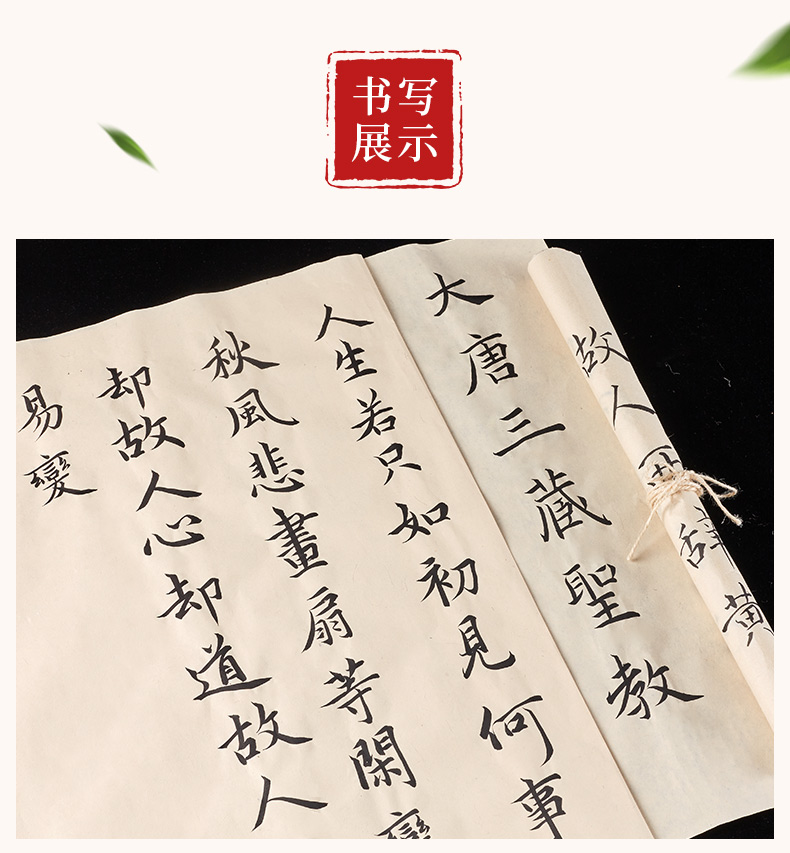 书写
展示
故人西辭黃
大唐三藏聖教
人生若只如初見何事
秋風悲畫扇等閑變
却故人心却道故人
易變